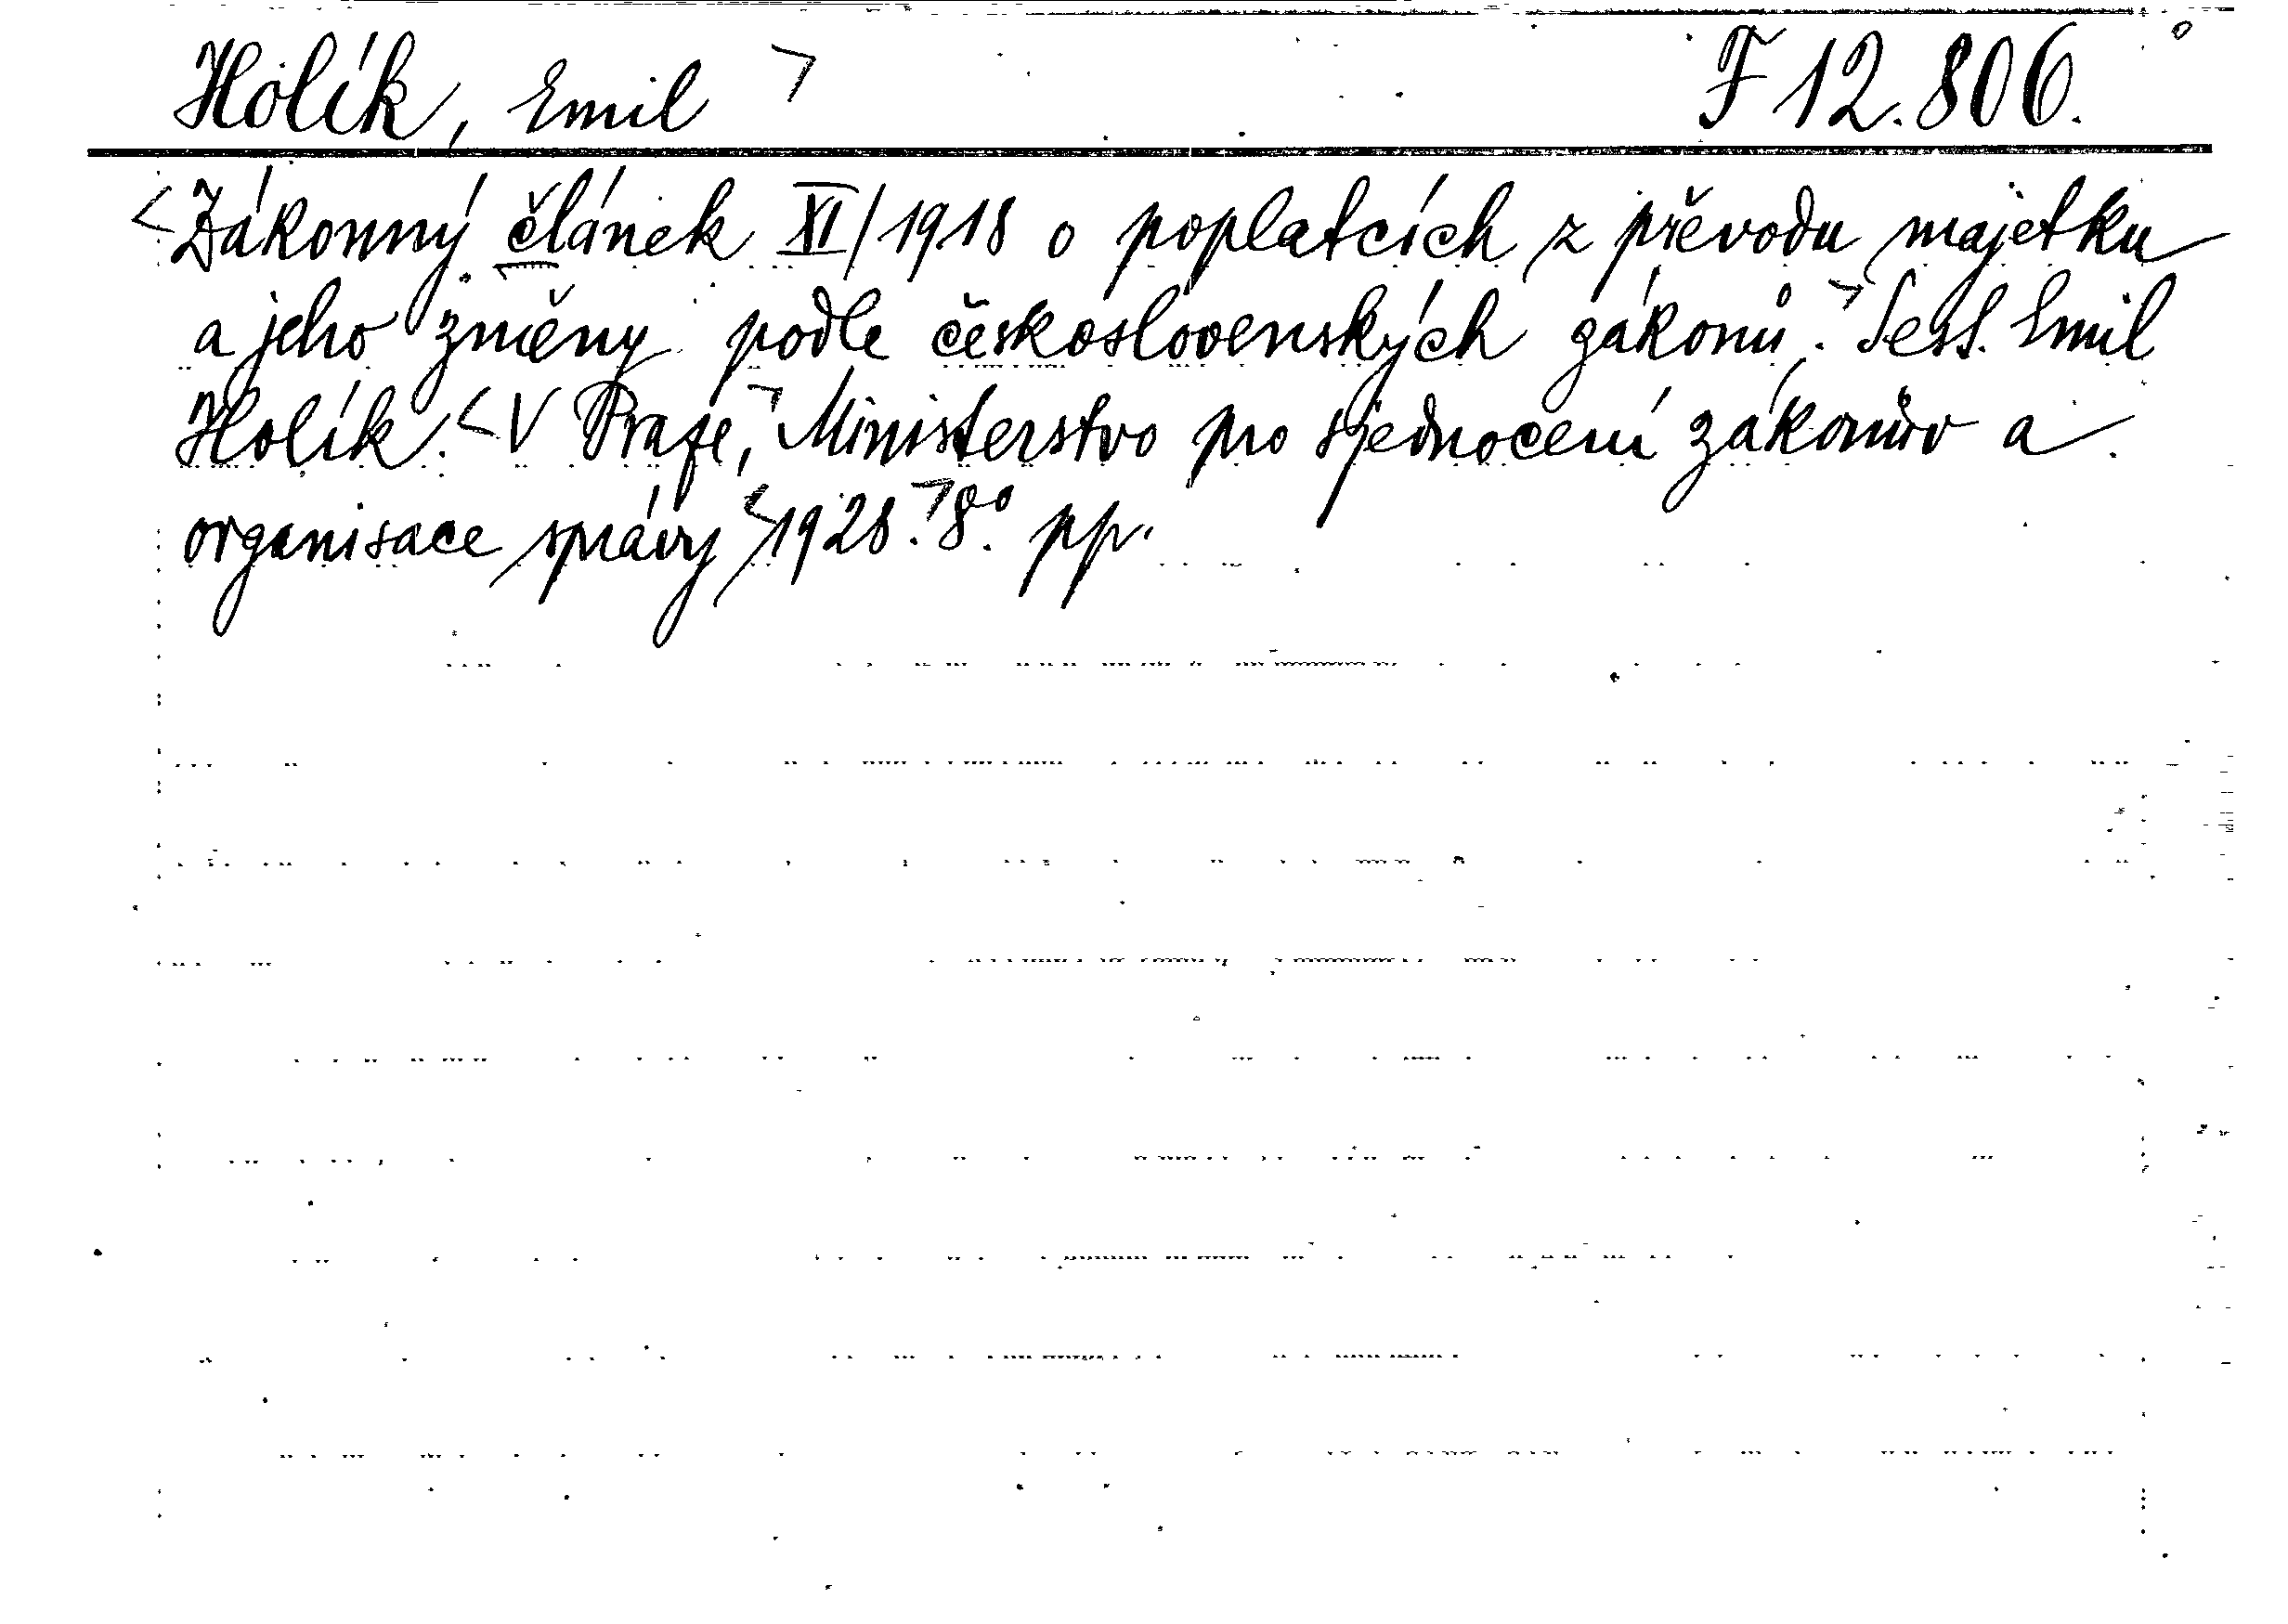 Holík, Emil F 12.806.
Zákonný článek XI/1918 o poplatcích z převodu majetku
a jeho změny podle československých zákonů. Sest. Emil
Holík. V Praze, Ministerstvo pro sjednocení zákonův a
organisace správy 1928. 8°. pp.